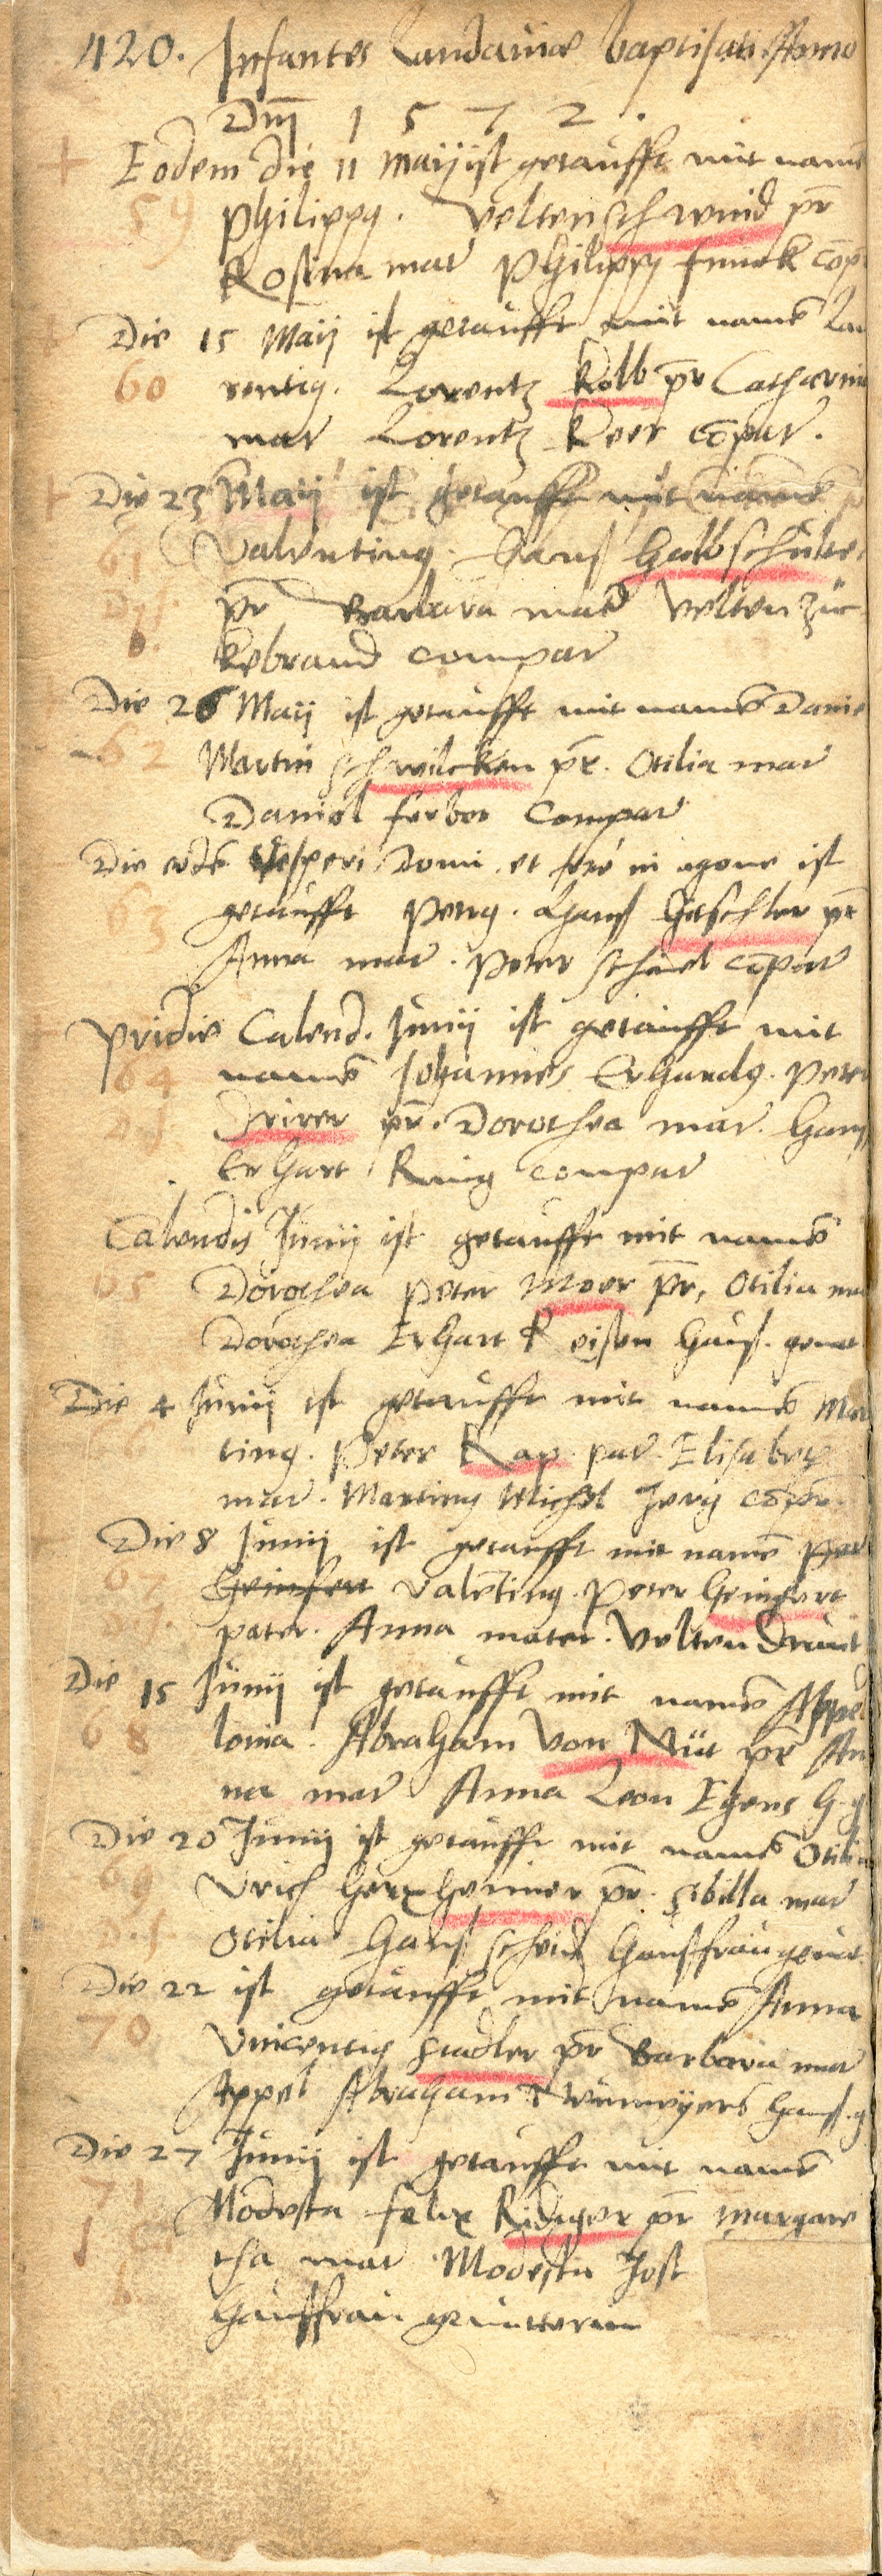 420. Infantes Landauiae baptisati. Anno
Dnī 1 5 7 2 .
+ Eodem die 11 Maij ist getaufft mit namē
59 Philippg. Velten schwind pr̄
Rosina mar Philippg funck cōp
Die 15 Maij ist getaufft mit namē Lau
60 rentig. Lorentz Kolb pr̄ Catharin
mar Lorentz Keer cōpar.
+ Die 23 Maij ist getaufft mit namē
61 Valenting. Hans halbschulte
pr̄ Barbara mar Velten zuc
kebrand compar
Die 26 Maij ist getaufft mit namē Danie
62 Martin schwilcken pr̄. Otilia mar
Daniel ferber Compar
Die eodē Vesperi Domi et ferè in agone ist
63 getaufft Petrg. Hans Geschler pr̄
Anna mar. Peter schiel cōpar
Pridie Calend. Junij ist getaufft mit
64 namē Johannes Erhardg. Peter
Drirer pr̄. Dorothea mar. Hans
Erhart Ring compar
Calendis Junij ist getaufft mit namē
65 Dorothea Peter Moer pr̄, Otilia ma
Dorothea Erhart Reisen Hauß. geuat
Die 4 Junij ist getaufft mit namē Mar
ting. Peter Kap par Elisabet
mar. Marting Michel Jerg cōpr̄
Die 8 Junij ist getaufft mit namē Pet
67 Geinfert Valēting. Peter Geinfert
pater. Anna mater. Velten Drunt
Die 15 Junij ist getaufft mit namē Appel
68 lonia. Abraham von Nüt pr̄ An
na mar Anna Leon Egens H. g
Die 20 Junij ist getaufft mit namē Otilia
69 Vrich Herxheimer pr̄. Sibilla mar
Otilia Hans scheid Hausfrau geuat
Die 22 ist getaufft mit namē Anna
70 Vincentig Stadler pr̄ Barbara mar
Appel Abraham Nürmeyers Hauß. g
Die 27 Junij ist getaufft mit namē
71 Modesta felix Ridiger pr̄ Margare
tha mar Modesta Jost
Haußfrau geuatterin